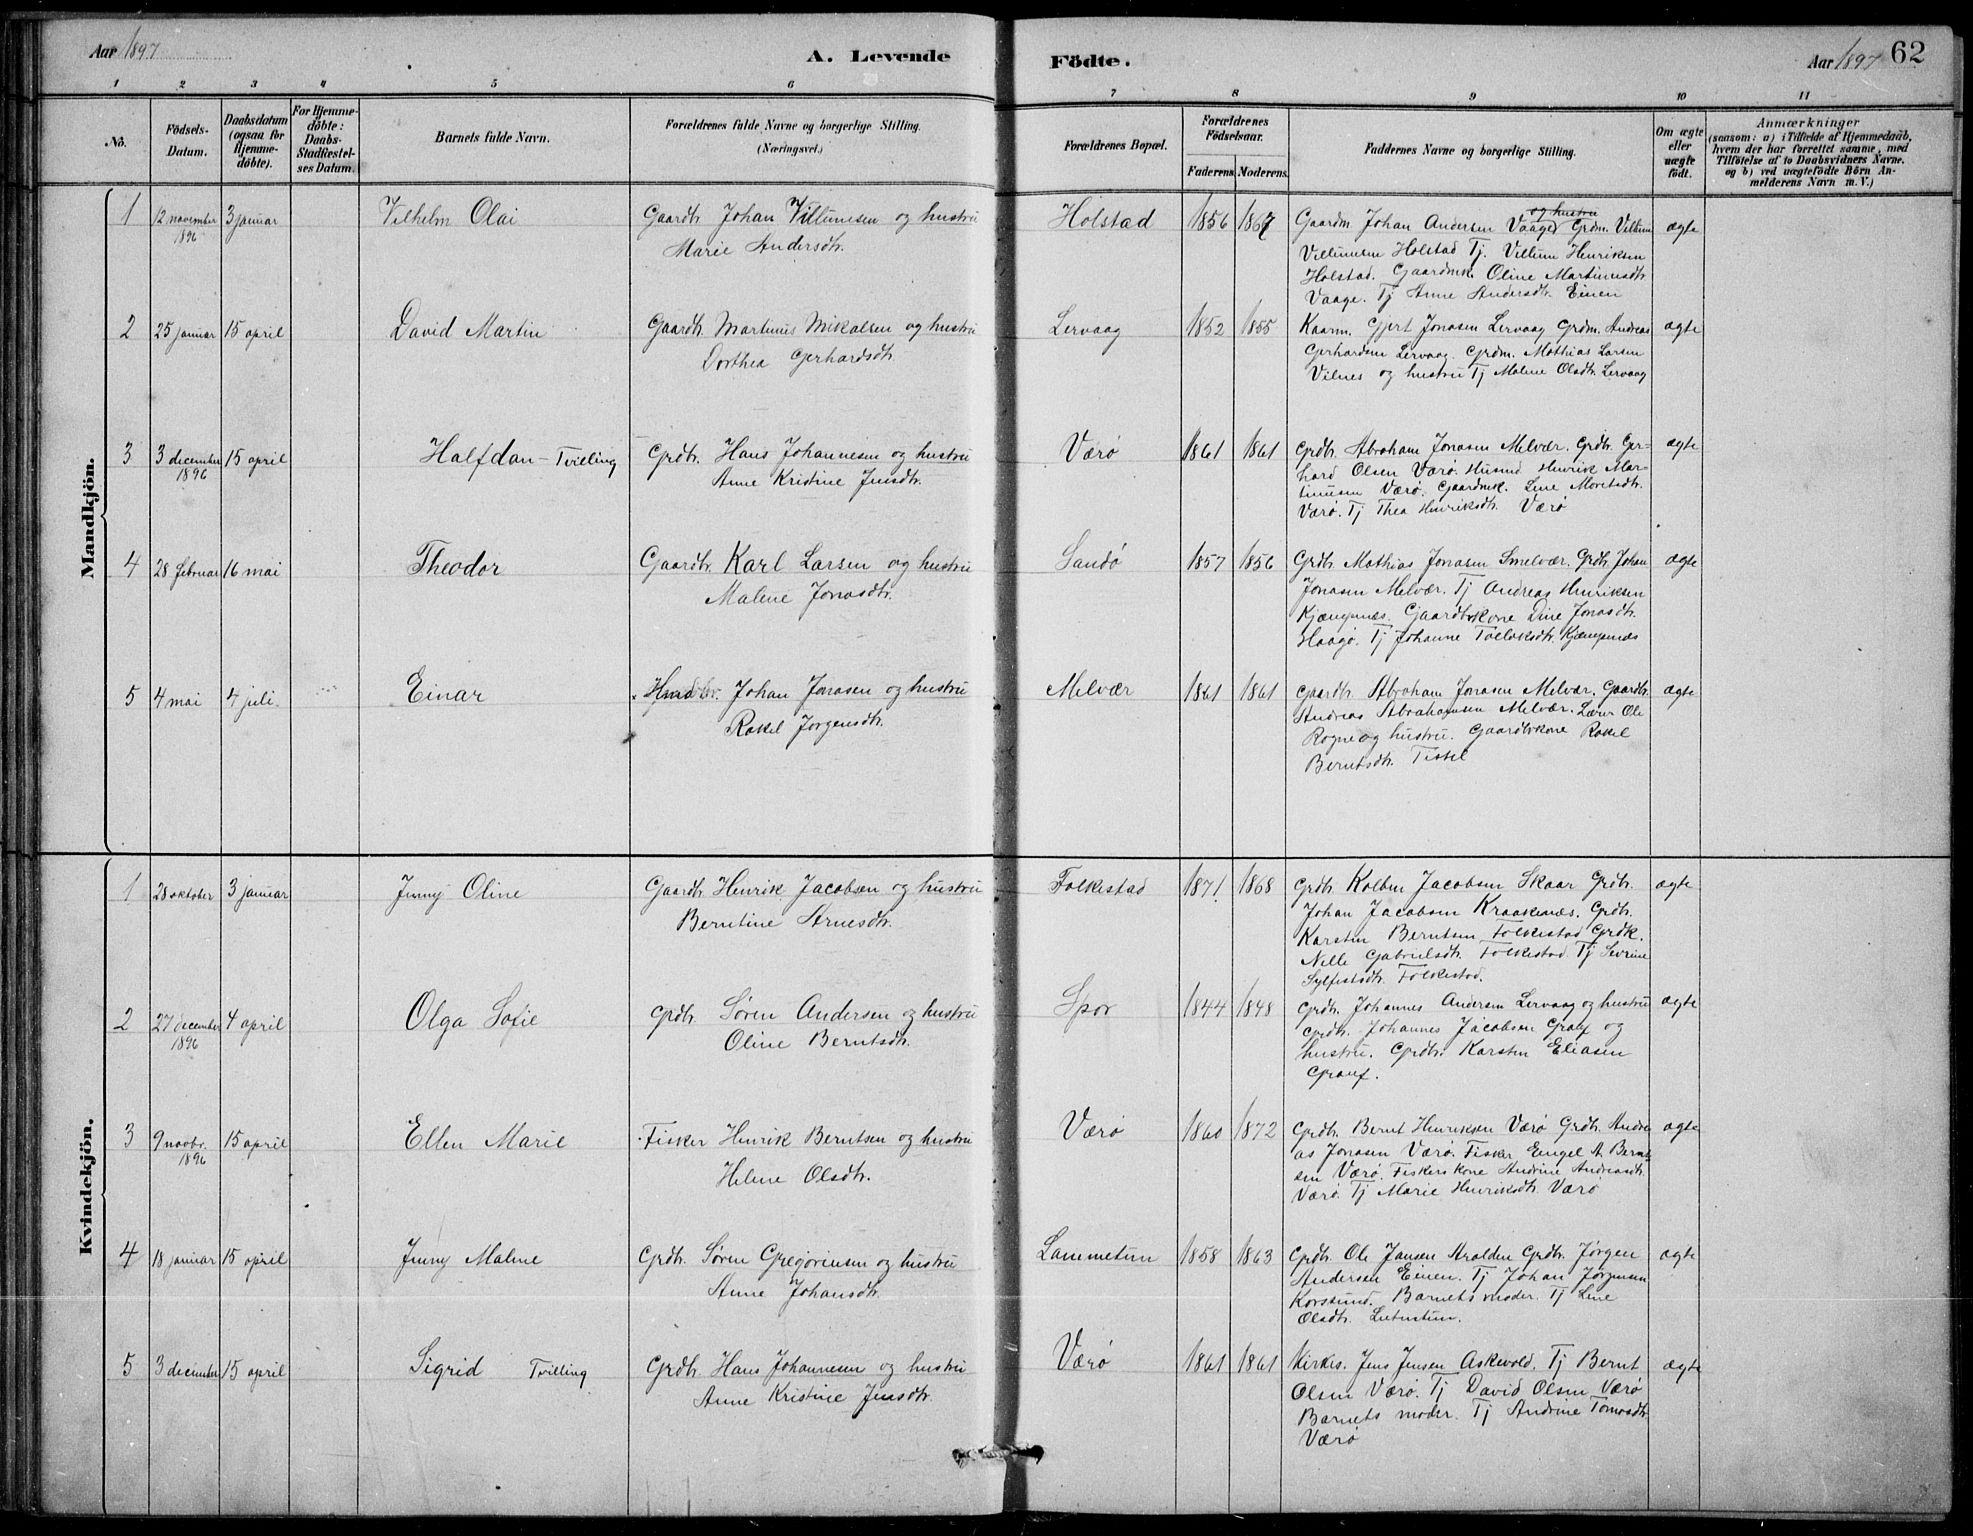 Aar 1897
A. Levende
Födte.
Aar 1897 62
1 2 3 4 5 6 7 8 9 10 11
No.
Födsels-
Datum.
Daabsdatum
(ogsaa for
Hjemme-
döbte).
For Hjemme-
döbte:
Daabs-
Stadfæstel-
ses Datum.
Barnets fulde Navn.
Forældrenes fulde Navne og borgerlige Stilling.
(Næringsvei.)
Forældrenes Bopæl.
Forældrenes
Födselsaar.
Faderens. Moderens.
Faddernes Navne og borgerlige Stilling.
Om ægte
eller
uægte
födt.
Anmærkninger
(saasom: a) i Tilfælde af Hjemmedaab,
hvem der har forrettet samme, med
Tilföielse af to Daabsvidners Navne,
og b) ved uægtefödte Börn An-
melderens Navn m. V.)
Mandkjön.
1 12 november 3 januar Vilhelm Olai Gaardbr. Johan Villumsen og hustru Holstad 1856 1867 ægte
1896 Marie Andersdtr.
og hustru
Gaardm Johan Andersen Vaage Grdm. Villum
Villumsen Holstad Tj. Villum Henriksen
Holstad. Gaardmk. Oline Martinusdtr.
Vaage. Tj Anne Andersdtr. Einen
2 25 januar 15 april David Martin Gaardbr. Martinus Mikalsen og hustru Lervaag 1852 1855 ægte
Dorthea Gerhardsdtr.
Kaarm. Gjert Jonasen Lervaag Grdm. Andreas
Gerhardsen Lervaag. Grdm. Mathias Larsen
Vilnes og hustru Tj Malene Olsdtr. Lervaag
3 3 december 15 april Halfdan - Tvilling Grdbr. Hans Johannesen og hustru Værø 1861 1861 ægte
1896 Anne Kristine Jensdtr.
Grdbr. Abraham Jonasen Melvær. Grdbr. Ger-
hard Olsen Værø. Husmd Henrik Mar-
tinusen Værø. Gaardmk. Line Moretsdtr.
Værø. Tj Thea Henriksdtr. Værø
4 28 februar 16 mai Theodor Gaardbr. Karl Larsen og hustru Sandø 1857 1856 ægte
Malene Jonasdtr.
Grdbr. Mathias Jonasen Smelvær. Grdbr. Johan
Jonasen Melvær. Tj Andreas Henriksen
Kjæmpenæs. Gaardbrkone Dine Jonasdtr.
Haagø. Tj Johanne Tollaksdtr. Kjæmpenæs
5 4 mai 4 juli Einar Johan Jonasen og hustru Melvær 1861 1861 ægte
Rakel Jørgensdtr.
Gaardbr. Abraham Jonasen Melvær. Gaardbr.
Andreas Abrahamsen Melvær. Lærer Ole
Rogne og hustru. Gaardbrkone Rakel
Berntsdtr. Tistel
Kvindekjön.
1 28 oktober 3 januar Jenny Oline Gaardbr. Henrik Jacobsen og hustru Folkestad 1871. 1868 ægte
Berntine Arnesdtr.
Grdbr. Kolben Jacobsen Skaar Grdbr.
Johan Jacobsen Kraakenæs. Grdbr.
Karsten Berntsen Folkestad Grdk.
Nelle Gabrielsdtr. Folkestad Tj Sevrine
Sylfestsdtr. Folkestad.
2 27 december 4 april Olga Sofie Grdbr. Søren Andersen og hustru Spor 1844 1848 ægte
1896 Oline Berntsdtr.
Grdbr. Johannes Andersen Lervaag og hustru
Grdbr. Johannes Jacobsen og
hustru. Grdbr. Karsten Eliasen
3 9 novbr. 15 april Ellen Marie Fisker Henrik Berntsen og hustru Værø 1860 1872 ægte
1896 Helene Olsdtr.
Grdbr. Bernt Henriksen Værø Grdbr. Andre
as Jonasen Værø. Fisker Eengel A. Bernt-
sen Værø. Fiskers kone Andrine Andreasdtr.
Værø. Tj Marie Henriksdtr. Værø
4 18 januar 15 april Jenny Malene Grdbr. Søren Gregoriusen og hustru Lammetun 1858 1863 ægte
Anne Johansdtr.
Grdbr. Ole Jansen Aralden Grdbr. Jørgen
Andersen Einen. Tj Johan Jørgensen
Korssund. Barnets moder. Tj Line
Olsdtr.
5 3 december 15 april Sigrid Tvilling Grdbr. Hans Johannesen og hustru Værø 1861 1861 ægte
Anne Kristine Jensdtr.
Kirkes. Jens Jensen Askevold. Tj Bernt
Olsen Værø. Tj David Olsen Værø
Barnets moder. Tj Andrine Tomasdtr.
Værø